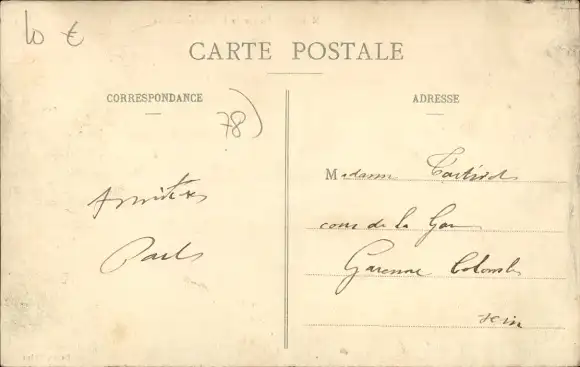 10 €
CARTE POSTALE
CORRESPONDANCE
ADRESSE
78)
Madame
Amitiés
Paul
cour de la Gare
Garenne Colombes
Seine